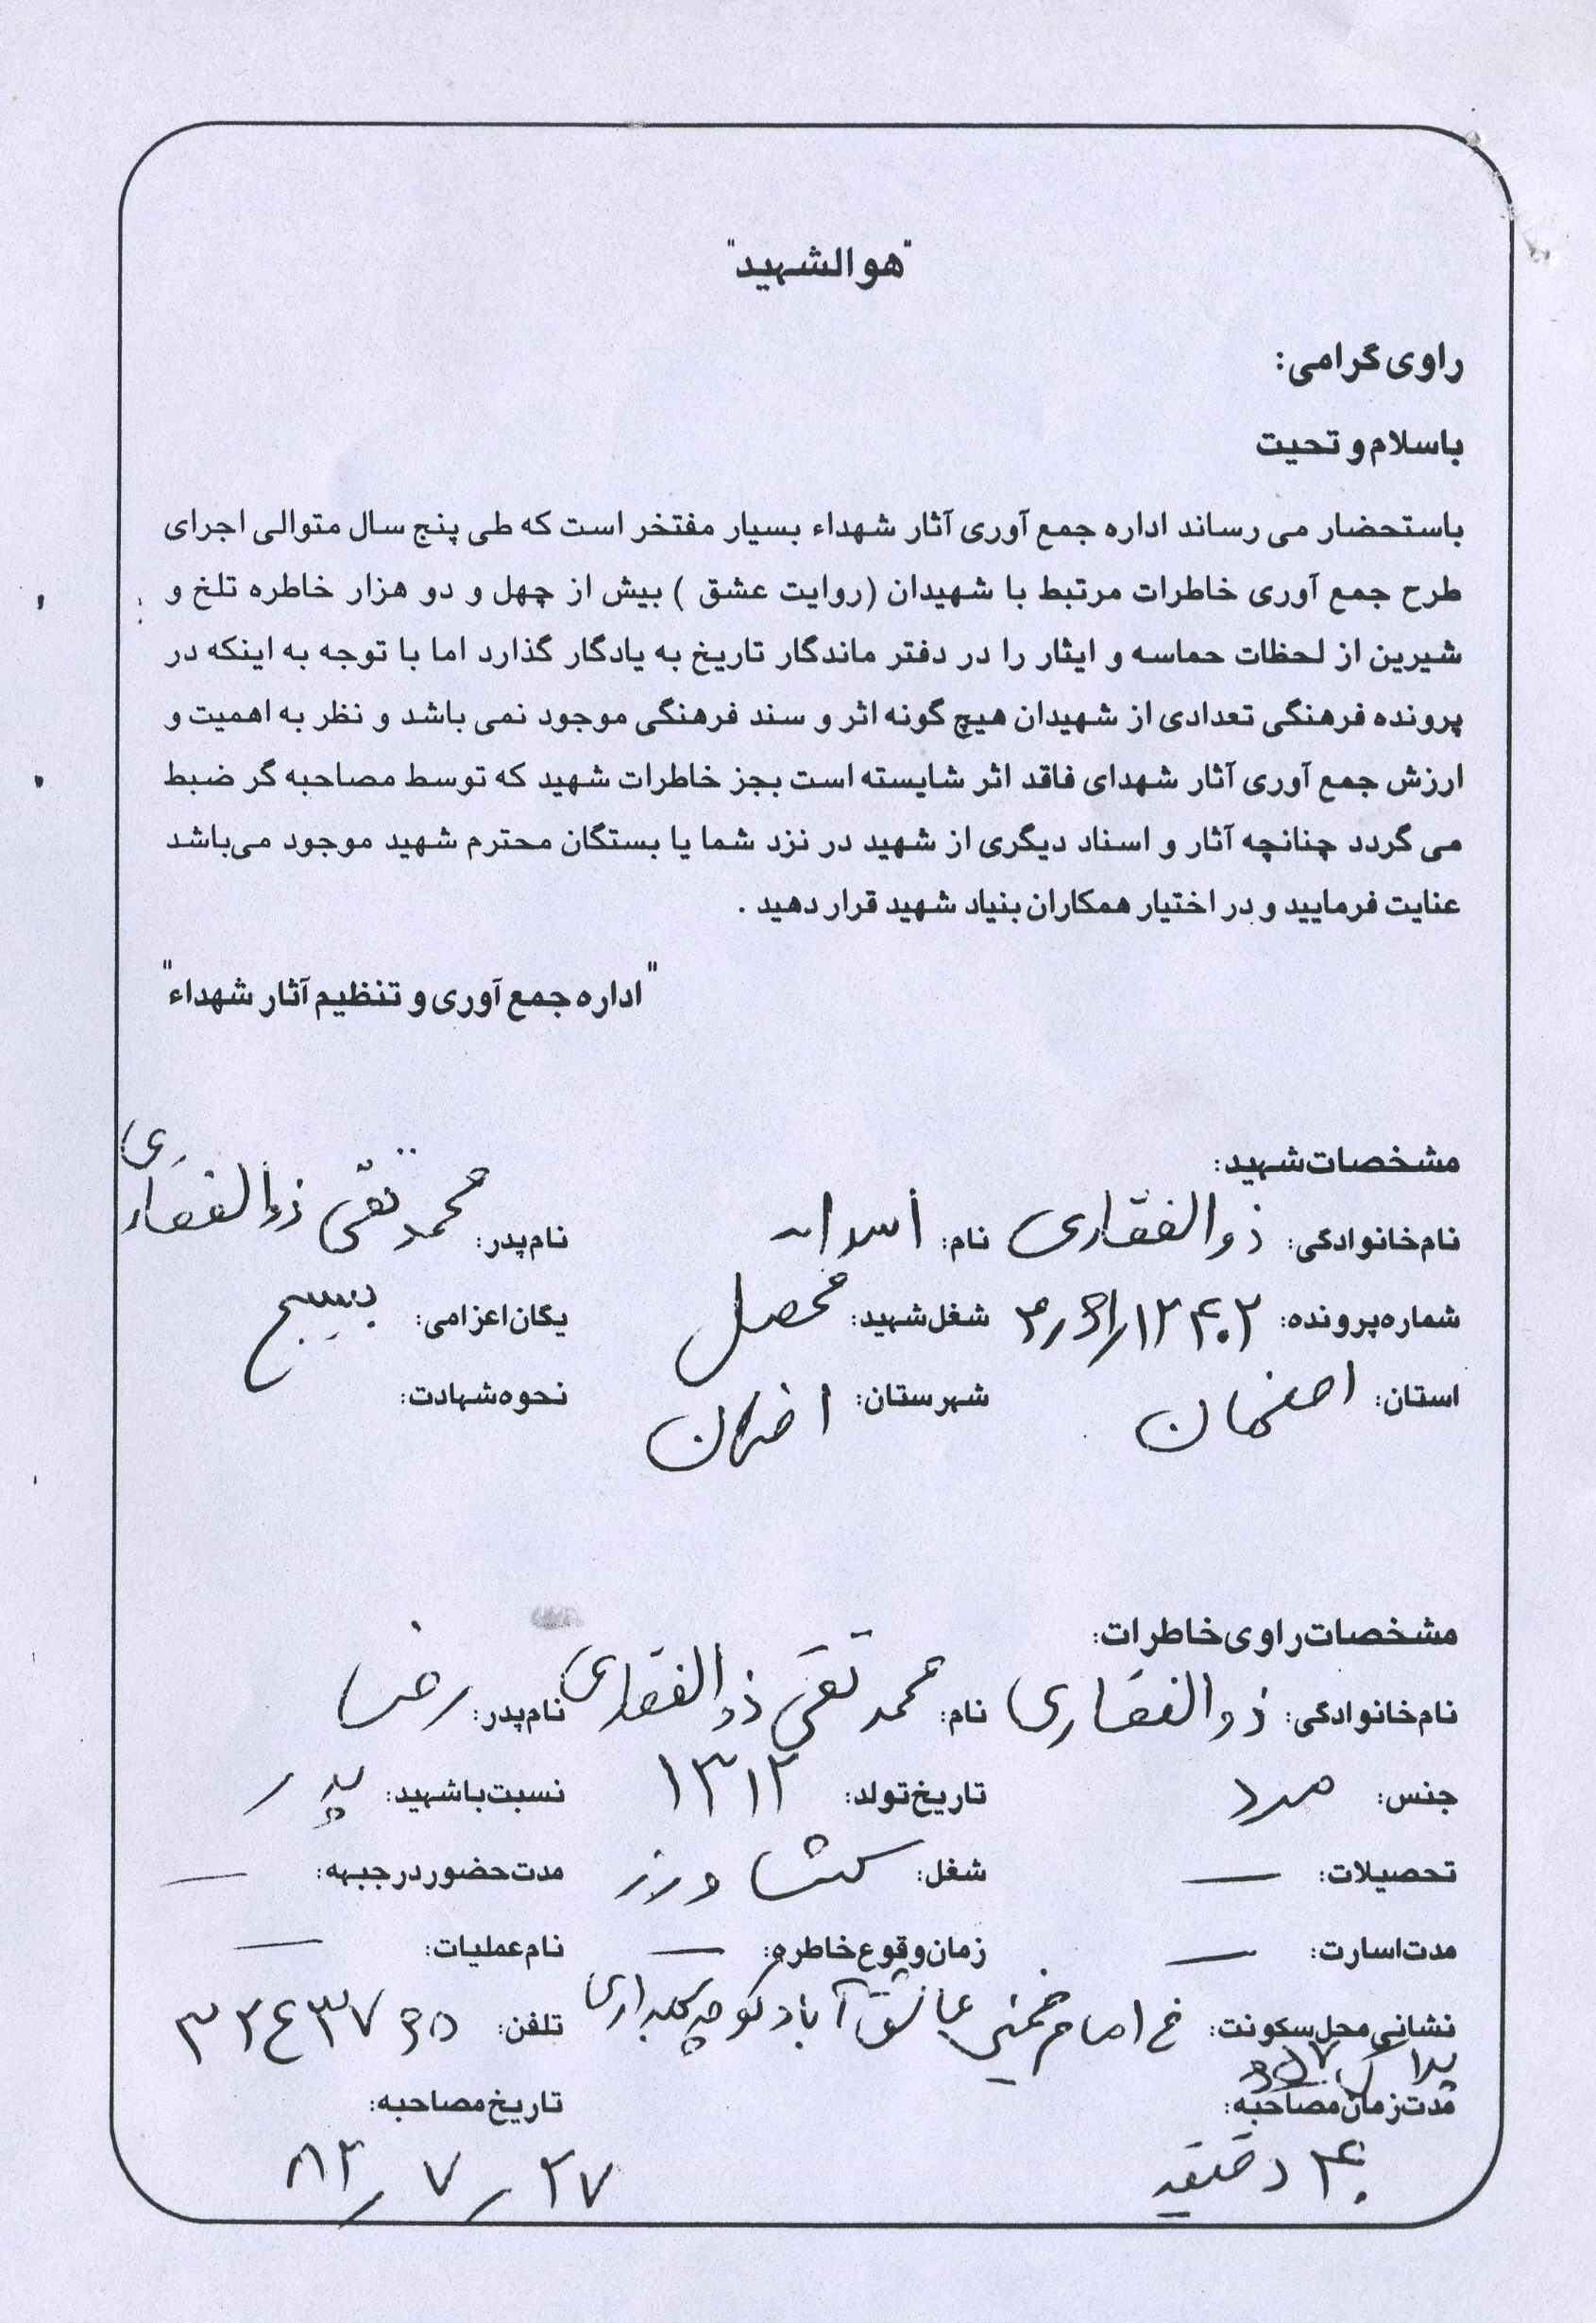 "هوالشهید"
راوی گرامی:
باسلام و تحیت
باستحضار می رساند اداره جمع آوری آثار شهداء بسیار مفتخر است که طی پنج سال متوالی اجرای
طرح جمع آوری خاطرات مرتبط با شهیدان (روایت عشق ) بیش از چهل و دو هزار خاطره تلخ و
شیرین از لحظات حماسه و ایثار را در دفتر ماندگار تاریخ به یادگار گذارد اما با توجه به اینکه در
پرونده فرهنگی تعدادی از شهیدان هیچ گونه اثر و سند فرهنگی موجود نمی باشد و نظر به اهمیت و
ارزش جمع آوری آثار شهدای فاقد اثر شایسته است بجز خاطرات شهید که توسط مصاحبه گر ضبط
می گردد چنانچه آثار و اسناد دیگری از شهید در نزد شما یا بستگان محترم شهید موجود می‌باشد
عنایت فرمایید و در اختیار همکاران بنیاد شهید قرار دهید .
"اداره جمع آوری و تنظیم آثار شهداء"
مشخصات شهید:
نام خانوادگی: ذوالفقاری نام: اسداله نام پدر: محمد تقی ذوالفقاری
شماره پرونده: شغل شهید: محصل یگان اعزامی: بسیج
استان: اصفهان شهرستان: نحوه شهادت:
مشخصات راوی خاطرات:
نام خانوادگی: ذوالفقاری نام: محمد تقی ذوالفقاری نام پدر: رضا
جنس: مرد تاریخ تولد: ۱۳۱۲ نسبت با شهید: پدر
تحصیلات: — شغل: کشاورز مدت حضور در جبهه: —
مدت اسارت: — زمان وقوع خاطره: — نام عملیات: —
نشانی محل سکونت: خ امام خمینی عاشق آباد کوچه تلفن:
پلاک
مدت زمان مصاحبه: تاریخ مصاحبه:
۴۰ دقیقه ۸۲/۷/۲۷